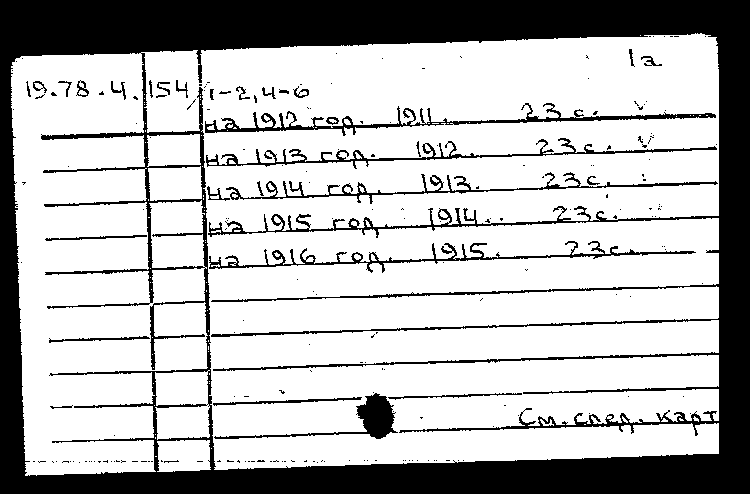 1а
19.78.4.154/1-2,4-6
на 1912 год. 1911. 23 с. V
на 1913 год. 1912. 23 с. V
на 1914 год. 1913. 23 с.
на 1915 год. 1914. 23 с.
на 1916 год. 1915. 23 с.
См. след. карт